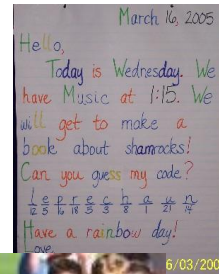 March 16, 2005
Hello,
Today is Wednesday. We
have Music at 1:15. We
will get to make a
book about shamrocks!
Can you guess my code?
l e p r e c h a u n
12 5 16 18 5 3 8 1 21 14
Have a rainbow day!
Love,
6/03/200